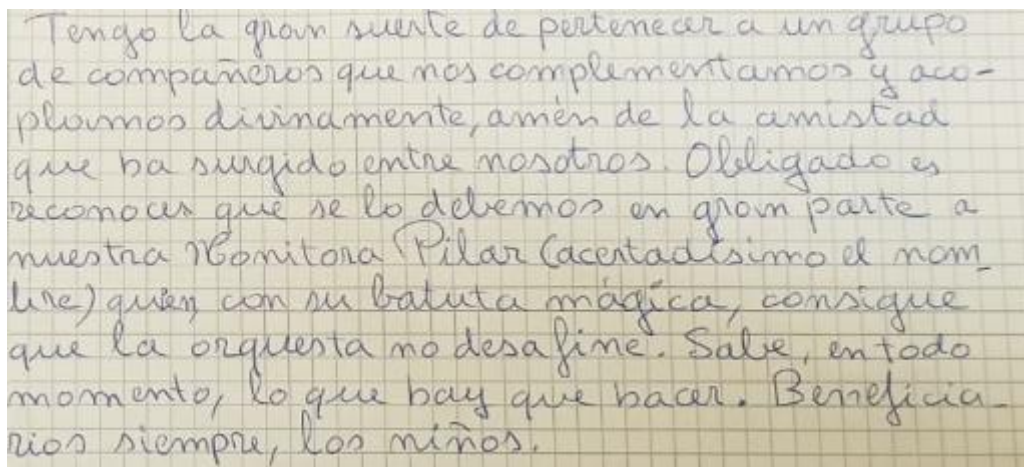 Tengo la gran suerte de pertenecer a un grupo
de compañeros que nos complementamos y aco-
plamos divinamente, amén de la amistad
que ha surgido entre nosotros. Obligado es
reconocer que se lo debemos en gran parte a
nuestra Monitora Pilar (acertadísimo el nom-
bre) quien, con su batuta mágica, consigue
que la orquesta no desafine. Sabe, en todo
momento, lo que hay que hacer. Beneficia-
rios siempre, los niños.